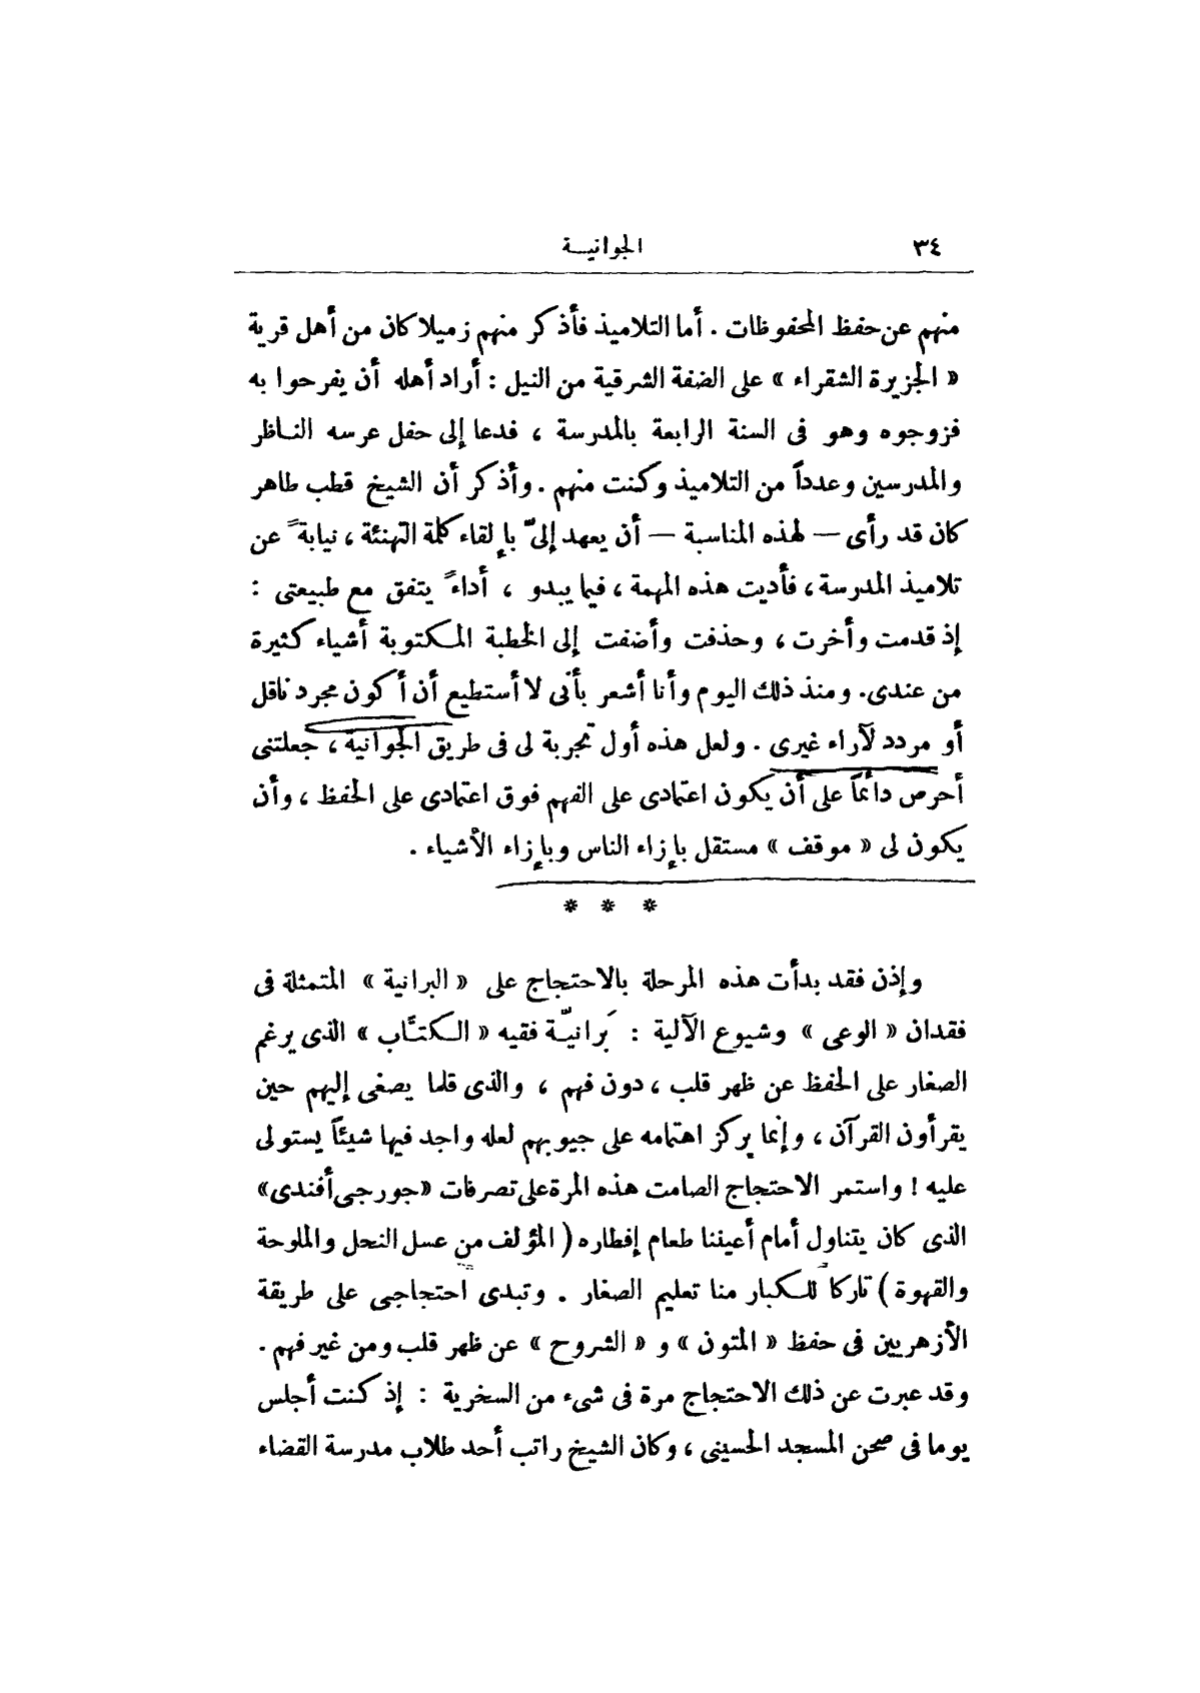 ٣٤
الجوانيــة
منهم عن حفظ المحفوظات . أما التلاميذ فأذكر منهم زميلا كان من أهل قرية
« الجزيرة الشقراء » على الضفة الشرقية من النيل : أراد أهله أن يفرحوا به
فزوجوه وهو فى السنة الرابعة بالمدرسة ، فدعا إلى حفل عرسه النـاظر
والمدرسين وعدداً من التلاميذ وكنت منهم . وأذكر أن الشيخ قطب طاهر
كان قد رأى — لهذه المناسبة — أن يعهد إلىّ بإلقاء كلمة التهنئة ، نيابةً عن
تلاميذ المدرسة ، فأديت هذه المهمة ، فيما يبدو ، أداءً يتفق مع طبيعتى :
إذ قدمت وأخرت ، وحذفت وأضفت إلى الخطبة المـكتوبة أشياء كثيرة
من عندى . ومنذ ذلك اليوم وأنا أشعر بأنى لا أستطيع أن أكون مجرد ناقل
أو مردد لآراء غيرى . ولعل هذه أول تجربة لى فى طريق الجوانية ، جعلتنى
أحرص دائماً على أن يكون اعتمادى على الفهم فوق اعتمادى على الحفظ ، وأن
يكون لى « موقف » مستقل بإزاء الناس وبإزاء الأشياء .
* * *
وإذن فقد بدأت هذه المرحلة بالاحتجاج على « البرانية » المتمثلة فى
فقدان « الوعى » وشيوع الآلية : بَرانيّـة فقيه « الـكتـَّاب » الذى يرغم
الصغار على الحفظ عن ظهر قلب ، دون فهم ، والذى قلما يصغى إليهم حين
يقرأون القرآن ، وإنما يركز اهتمامه على جيوبهم لعله واجد فيها شيئاً يستولى
عليه ! واستمر الاحتجاج الصامت هذه المرة على تصرفات «جورجى أفندى»
الذى كان يتناول أمام أعيننا طعام إفطاره ( المؤلف من عسل النحل والملوحة
والقهوة ) تاركا للـكبار منا تعليم الصغار . وتبدى احتجاجى على طريقة
الأزهريين فى حفظ « المتون » و « الشروح » عن ظهر قلب ومن غير فهم .
وقد عبرت عن ذلك الاحتجاج مرة فى شىء من السخرية : إذ كنت أجلس
يوما فى صحن المسجد الحسينى ، وكان الشيخ راتب أحد طلاب مدرسة القضاء